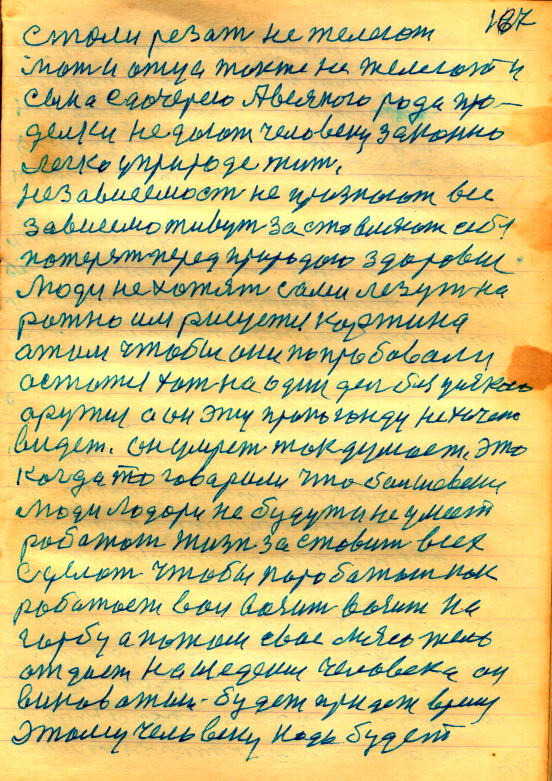 187
стали резат не желают
мат и отца также не желают и
сына с дочерею А всякого рода про-
делки не дают человеку законно
легко у природе жит,
независемост не признают все
зависемо живут заставляют себя
потерят перед природою здоровие.
Люди не хотят сами лезут на
рожно им рисуется картина
а там чтобы они попробовали
остатся хот на один ден без всякого
оружия а он эту пропоганду не хочет
видет. он умрет так думает, Это
когда то говарили что болшевеки
люди Лодори не будут и не умеют
работат жизн заставит всех
сделат чтобы поработат как
работает вол возит возит на
горбу а потом свое мясо жене
отдает на седение человека он
виноватый. будет придет время
этому человеку надо будет